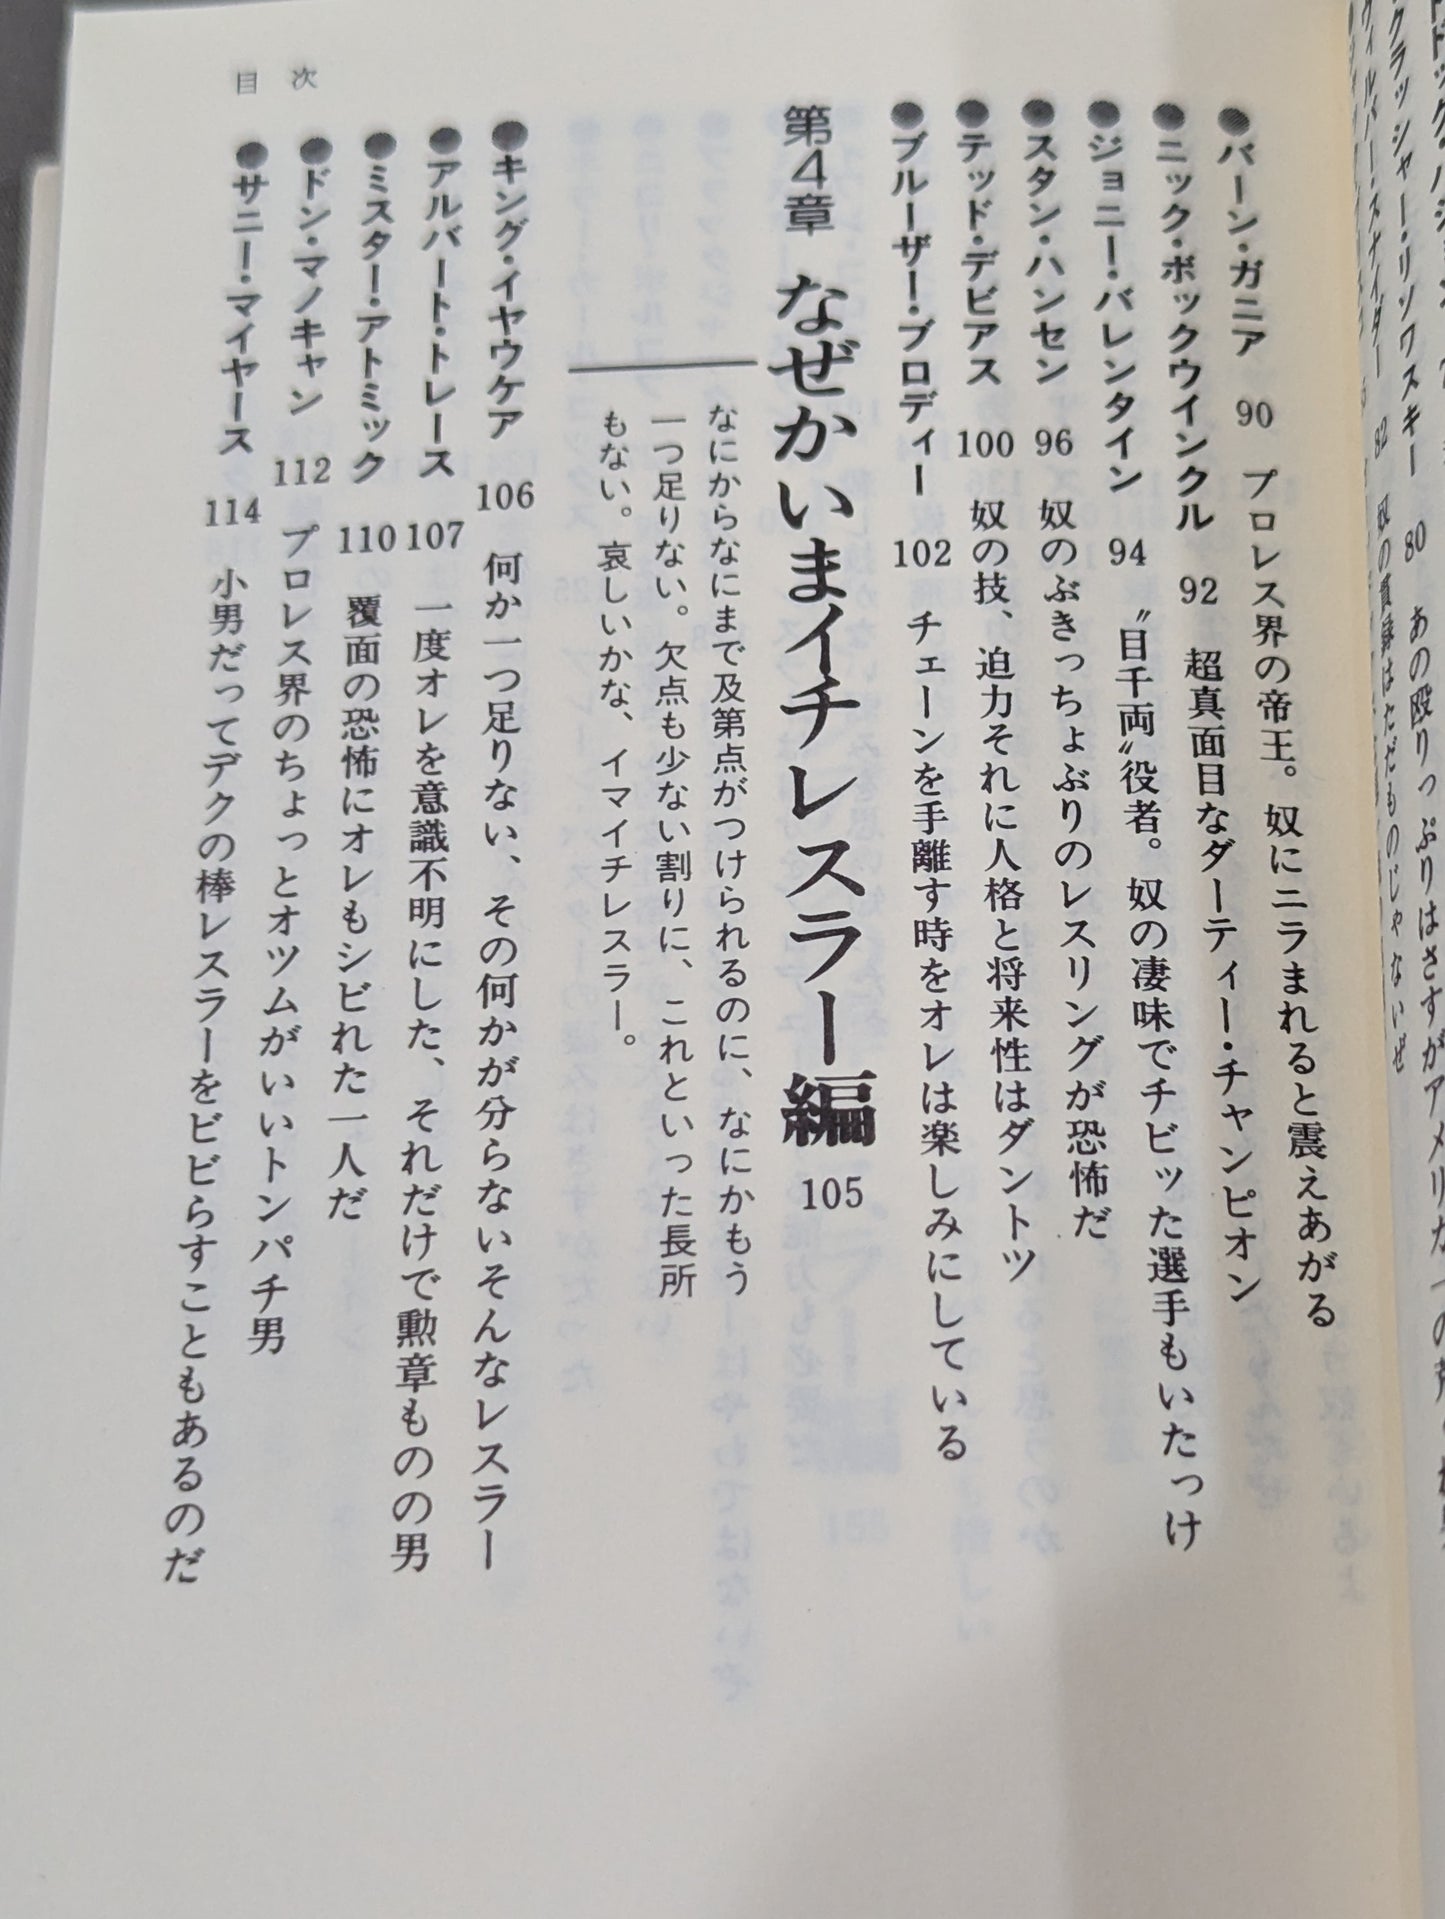 クラッシャー・リソワスキー 80 あの殴りっぷりはさすがアメリカ
82 奴の貫録はただものじゃないぜ
●バーン・ガニア 90 プロレス界の帝王。奴にニラまれると震えあがる
●ニック・ボックウインクル 92 超真面目なダーティー・チャンピオン
●ジョニー・バレンタイン 94 〝目千両〟役者。奴の凄味でチビッた選手もいたっけ
●スタン・ハンセン 96 奴のぶきっちょぶりのレスリングが恐怖だ
●テッド・デビアス 100 奴の技、迫力それに人格と将来性はダントツ
●ブルーザー・ブロディー 102 チェーンを手離す時をオレは楽しみにしている
第4章 なぜかいまイチレスラー編 105
なにからなにまで及第点がつけられるのに、なにかもう
一つ足りない。欠点も少ない割りに、これといった長所
もない。哀しいかな、イマイチレスラー。
●キング・イヤウケア 106 何か一つ足りない、その何かが分らないそんなレスラー
●アルバート・トレース 107 一度オレを意識不明にした、それだけで勲章ものの男
●ミスター・アトミック 110 覆面の恐怖にオレもシビれた一人だ
●ドン・マノキャン 112 プロレス界のちょっとオツムがいいトンパチ男
●サニー・マイヤース 114 小男だってデクの棒レスラーをビビらすこともあるのだ
目次